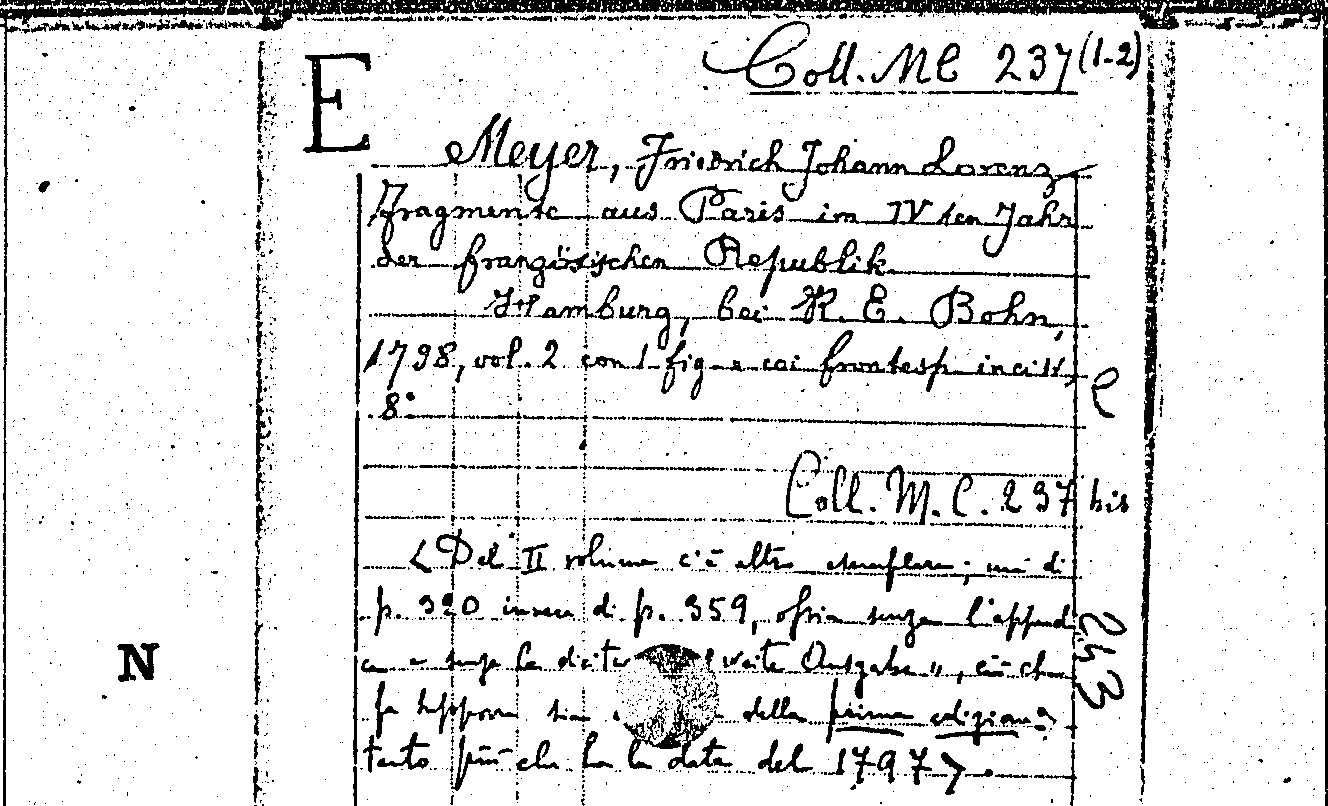 Coll. MC 237 (1-2)
E
Meyer, Friedrich Johann Lorenz
Fragmente aus Paris im IV ten Jahr
der französischen Republik
Hamburg, bei K. E. Bohn,
1798, vol. 2 con 1 fig e coi frontesp. incisi,
8°
Coll. M. C. 237 bis
< Del II volume c'è altro esemplare, ma di
p. 320 invece di p. 359, ossia senza l'append
ce e senza la dicitura Ausgabe", ciò che
fa supporre sia della prima edizione
tanto più che ha la data del 1797 >.
e
243
N